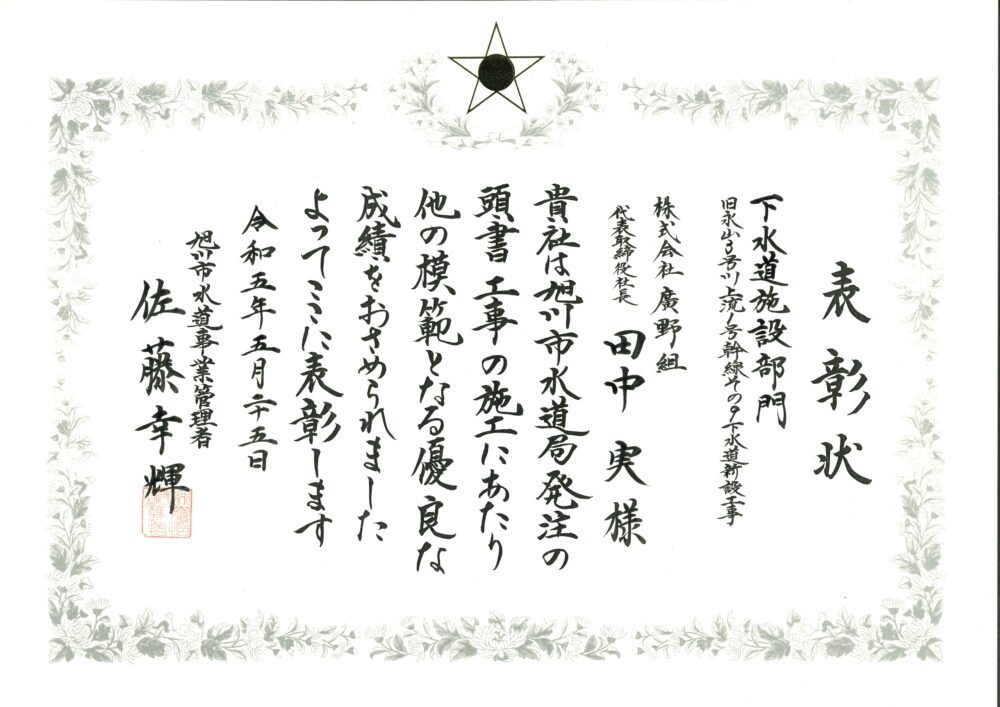 表彰状
下水道施設部門
旧永山3号川上流1号幹線その9下水道新設工事
株式会社 廣野組
代表取締役社長
田中 実 様
貴社は旭川市水道局発注の
頭書工事の施工にあたり
他の模範となる優良な
成績をおさめられました
よってここに表彰します
令和五年五月二十五日
旭川市水道事業管理者
佐藤幸輝